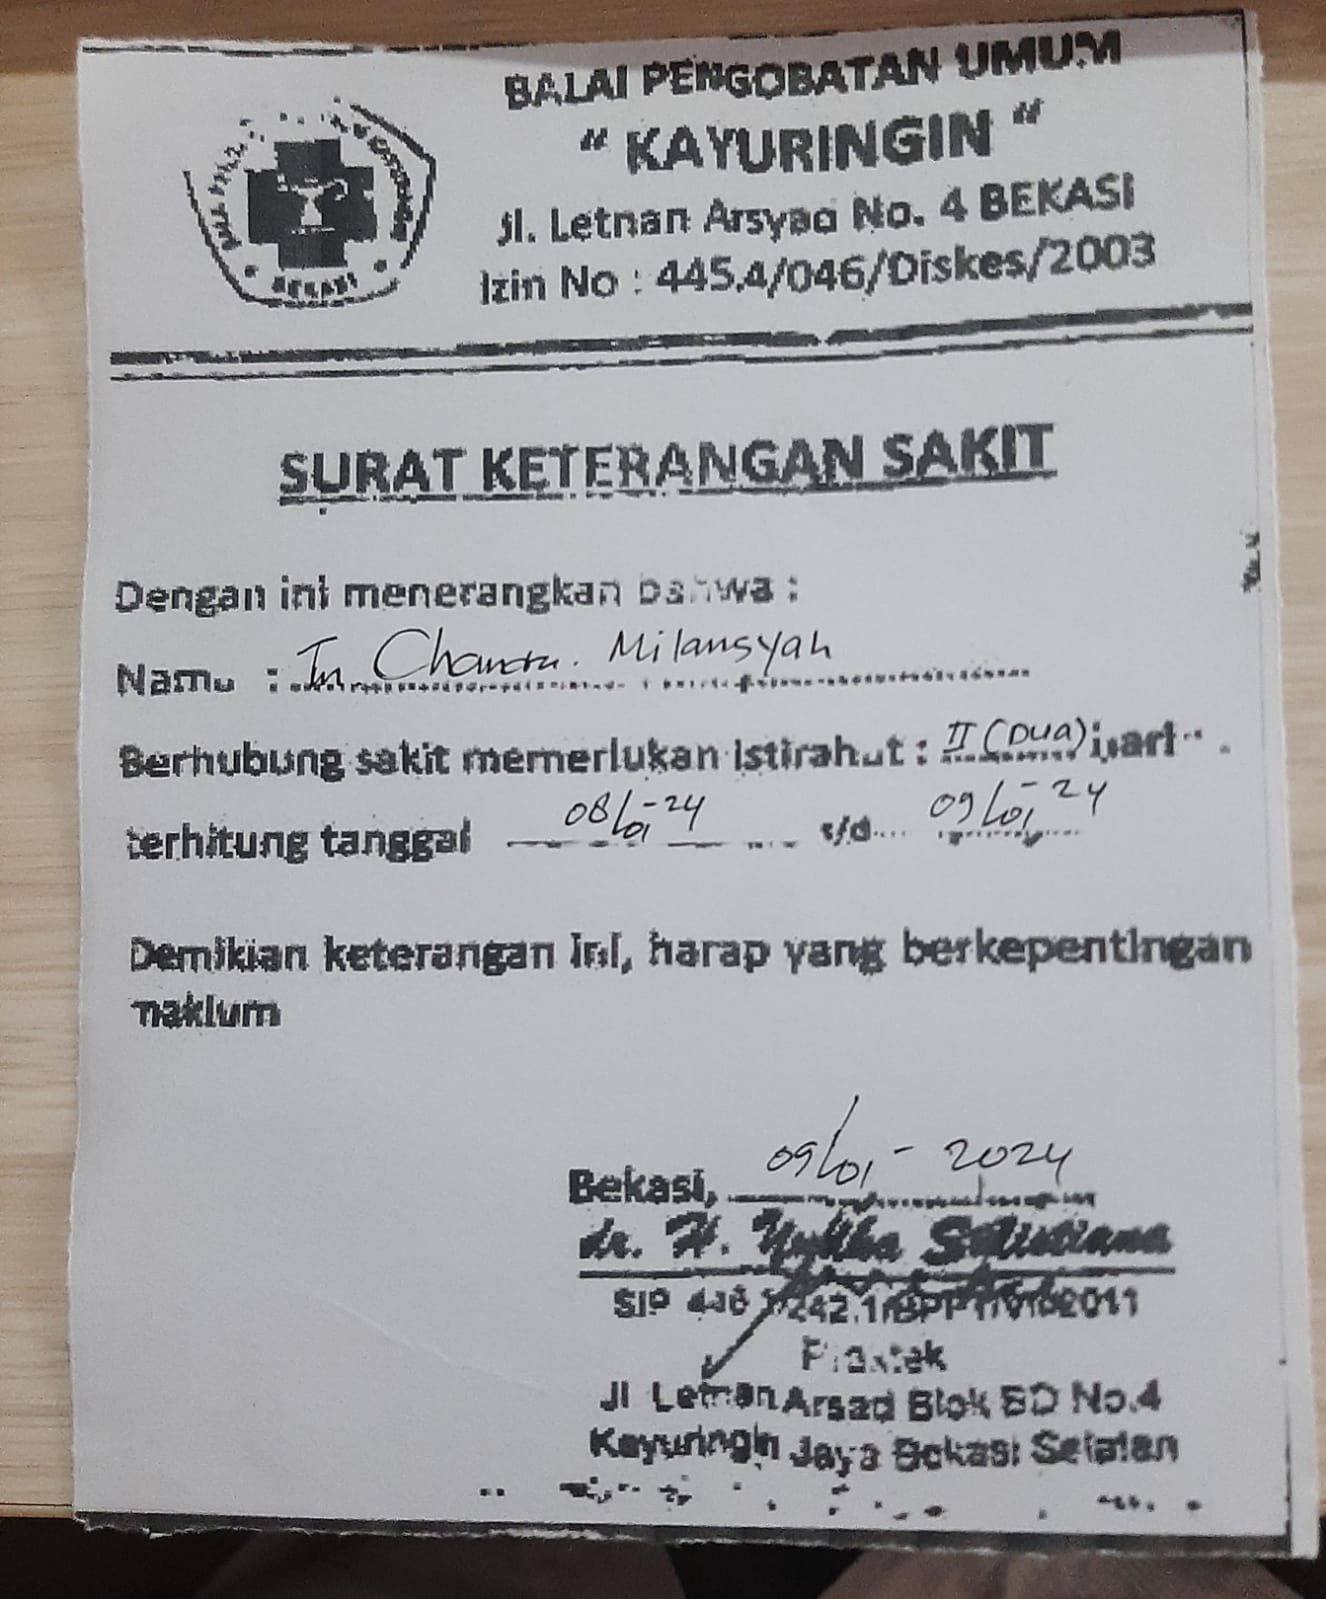 BALAI PENGOBATAN UMUM
“ KAYURINGIN “
Jl. Letnan Arsyad No. 4 BEKASI
Izin No : 445.4/046/Diskes/2003
BEKASI
SURAT KETERANGAN SAKIT
Dengan ini menerangkan bahwa :
Nama : Tn. Chandra. Milansyah
Berhubung sakit memerlukan istirahat : II (DUA) hari
terhitung tanggal 08/01-24 s/d 09/01-24
Demikian keterangan ini, harap yang berkepentingan
maklum
Bekasi, 09/01-2024
dr. H.
SIP
Praktek
Jl Letnan Arsad Blok BD No.4
Kayuringin Jaya Bekasi Selatan